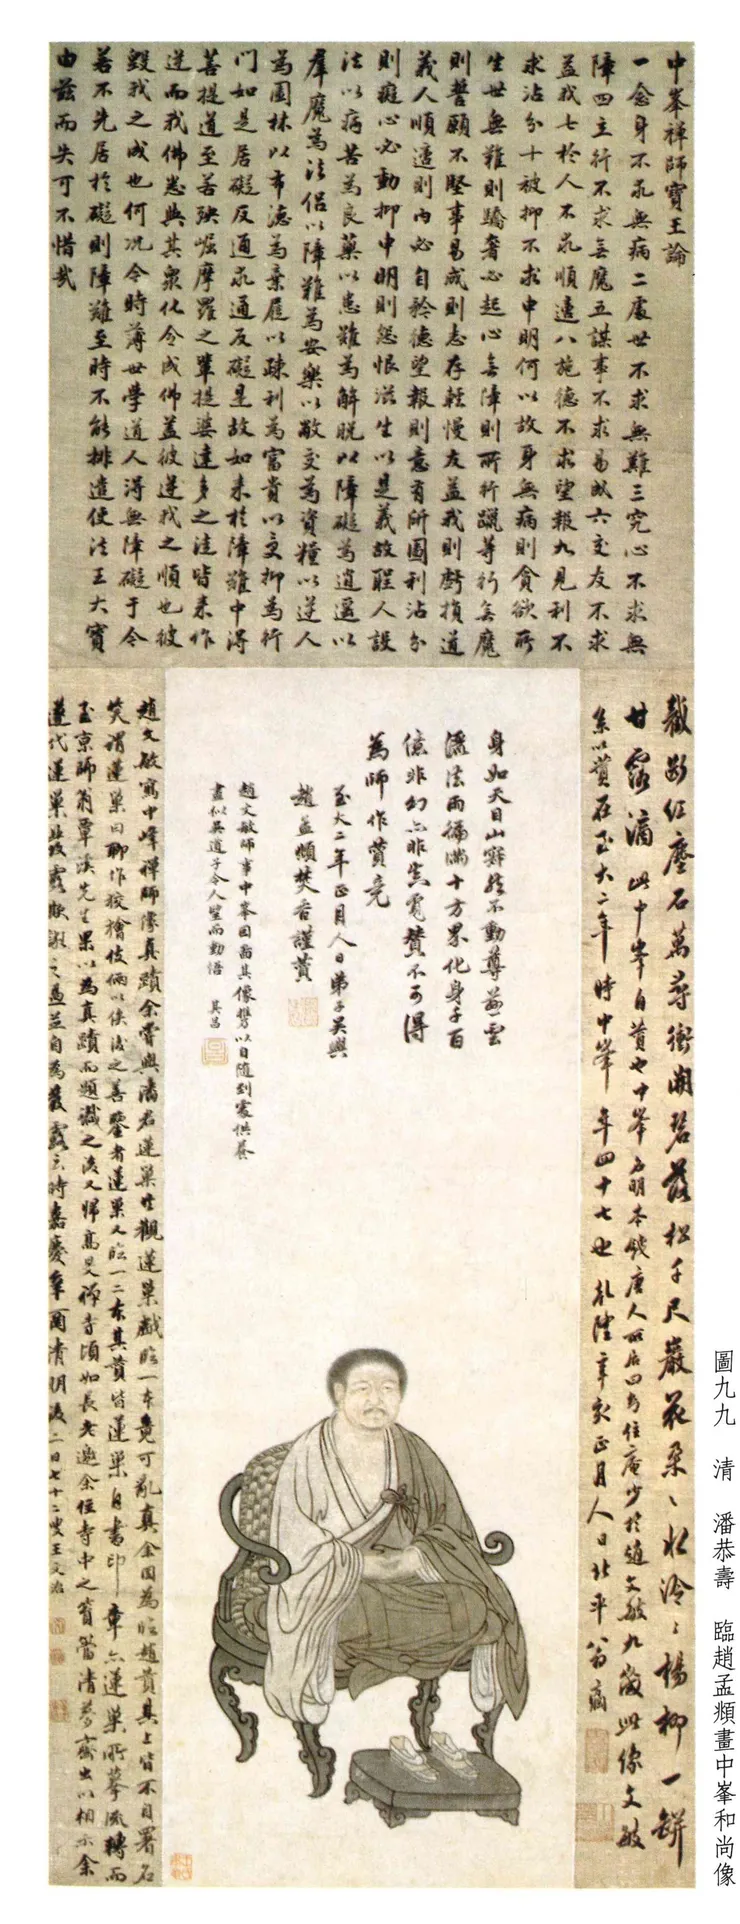 中峯禪師寶王論
一念身不求無病二處世不求無難三究心不求無
障四立行不求無魔五謀事不求易成六交友不求
益我七於人不求順適八施德不求望報九見利不
求沾分十被抑不求申明何以故身無病則貪欲所
生世無難則驕奢必起心無障則所行躐等行無魔
則誓願不堅事易成則志存輕慢友益我則虧損道
義人順適則內必自矜德望報則意有所圖利沾分
則癡心必動抑申明則怨恨滋生以是義故聖人設
法以病苦為良藥以患難為解脫以障礙為逍遙以
羣魔為法侶以障難為安樂以敝交為資糧以逆人
為園林以市德為棄屣以疎利為富貴以受抑為行
門如是居礙反通求通反礙是故如來於障難中得
菩提道至若殃崛摩羅之輩提婆達多之徒皆來作
逆而我佛悉與其化令成佛蓋彼逆我之順也彼
毀我之成也何況今時薄世學道人得無障礙于今
若不先居於礙則障難至時不能排遣使法王大寶
由茲而失可不惜哉
截斷紅塵石萬尋衝開碧落松千尺巖花朶〻水泠〻楊柳一缾
甘露滴 此中峯自贊也中峯名明本錢唐人所居四為住庵少於趙文敏九歲此像文敏
系以贊在至大二年時中峯年四十七也 乾隆辛亥正月人日北平翁方綱
身如天目山寂然不動尊慈雲
灑法雨徧滿十方界化身千百
億非幻亦非真覓贊不可得
為師作贊竟
至大二年正月人日弟子吳興
趙孟頫焚香謹贊
趙文敏師事中峯因寫其像攜以自隨到處供養
畫似吳道子令人望而動悟 其昌
趙文敏寫中峰禪師像真蹟余嘗與潘君蓮巢借觀蓮巢戲臨一本竟可亂真余因為臨趙贊其上皆不自署名
笑謂蓮巢曰聊作狡獪伎倆以俟後之善鑒者蓮巢又臨一二本其贊皆蓮巢自書印章亦蓮巢所摹流轉而
至京師翁覃溪先生果以為真蹟而題識之後又歸高旻禪寺頃如長老邀余住寺中之當清夢齋出以相示余
遂代蓮巢發露欺誑之過並自為發露云時嘉慶辛酉清明後二日七十二叟王文治
圖九九 清 潘恭壽 臨趙孟頫畫中峯和尚像